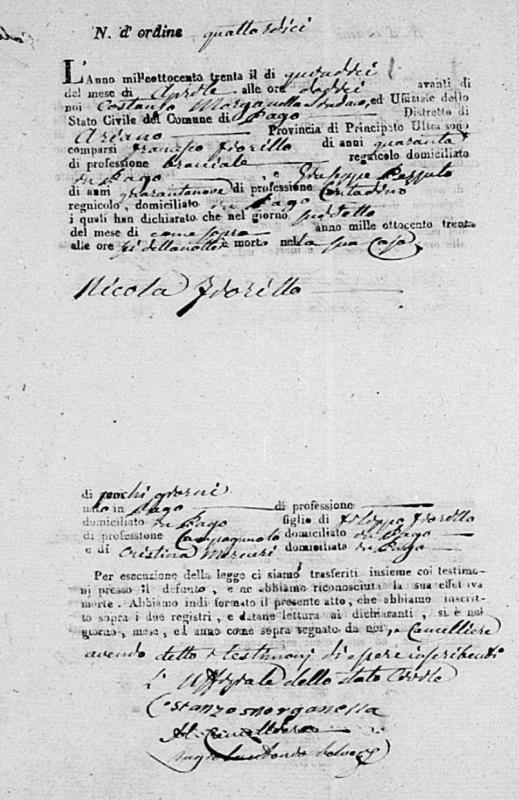 N. d' ordine quattordici
L'Anno mill'eottocento trenta il di quindici
del mese di Aprile alle ore dodici avanti di
noi Costanzo Morganella Sindaco, ed Uffiziale dello
Stato Civile del Comune di Pago Distretto di
Ariano Provincia di Principato Ultra sono
comparsi Francesco Fiorillo di anni quaranta
di professione Bracciale regnicolo domiciliato
in Pago, e Giuseppe Pezzulo
di anni quarantanove di professione Contadino
regnicolo, domiciliato in Pago
i quali han dichiarato che nel giorno suddetto
del mese di come sopra anno mille ottocento trenta
alle ore della notte è morto nella sua Casa
Nicola Fiorillo
di pochi giorni
nato in Pago di professione
domiciliato in Pago figlio di Filippo Fiorillo
di professione Campagnolo domiciliato in Pago
e di Cristina Mercuri domiciliata in Pago
Per esecuzione della legge ci siamo trasferiti insieme coi testimo-
nj presso il defunto, e ne abbiamo riconosciuta la sua effettiva
morte. Abbiamo indi formato il presente atto, che abbiamo inscrit-
to sopra i due registri, e datane lettura ai dichiaranti, si è nel
giorno, mese, ed anno come sopra segnato da noi, e Cancelliere
avendo detto i testimonj di essere inscribendi
L' Uffiziale dello stato Civile
Costanzo Morganella
Il Cancelliere